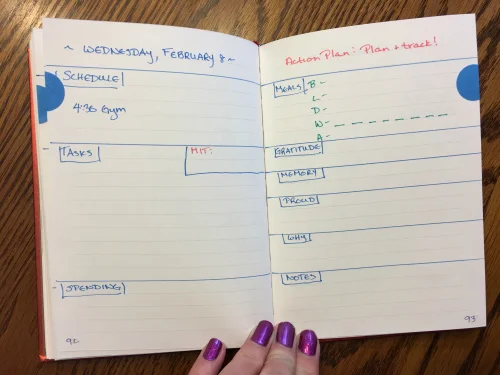 ~ WEDNESDAY, FEBRUARY 8 ~
SCHEDULE
4:30 Gym
TASKS
MIT:
SPENDING
92
Action Plan: Plan + track!
MEALS
B -
L -
D -
W -
A -
GRATITUDE
MEMORY
PROUD
WHY
NOTES
93